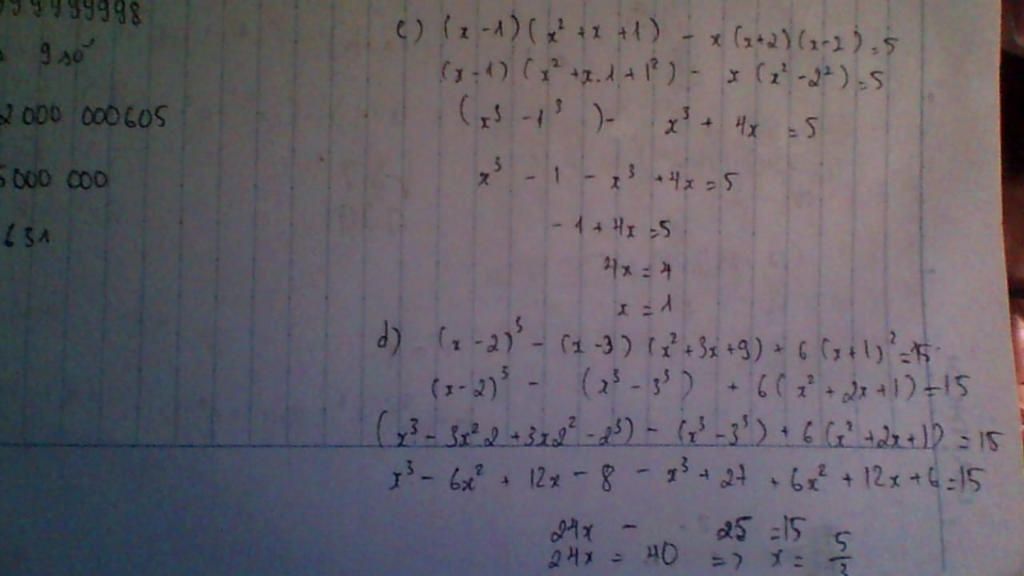 99999998
9 số
2000 000605
5000 000
631
c) (x-1)(x² + x + 1) - x(x+2)(x-2) = 5
(x-1)(x² + x.1 + 1²) - x(x² - 2²) = 5
(x³ - 1³) - x³ + 4x = 5
x³ - 1 - x³ + 4x = 5
-1 + 4x = 5
4x = 4
x = 1
d) (x-2)³ - (x-3)(x² + 3x + 9) + 6(x+1)² = 15
(x-2)³ - (x³ - 3³) + 6(x² + 2x + 1) = 15
(x³ - 3x²2 + 3x2² - 2³) - (x³ - 3³) + 6(x² + 2x + 1) = 15
x³ - 6x² + 12x - 8 - x³ + 27 + 6x² + 12x + 6 = 15
24x - 25 = 15
24x = 40 => x = 5/3